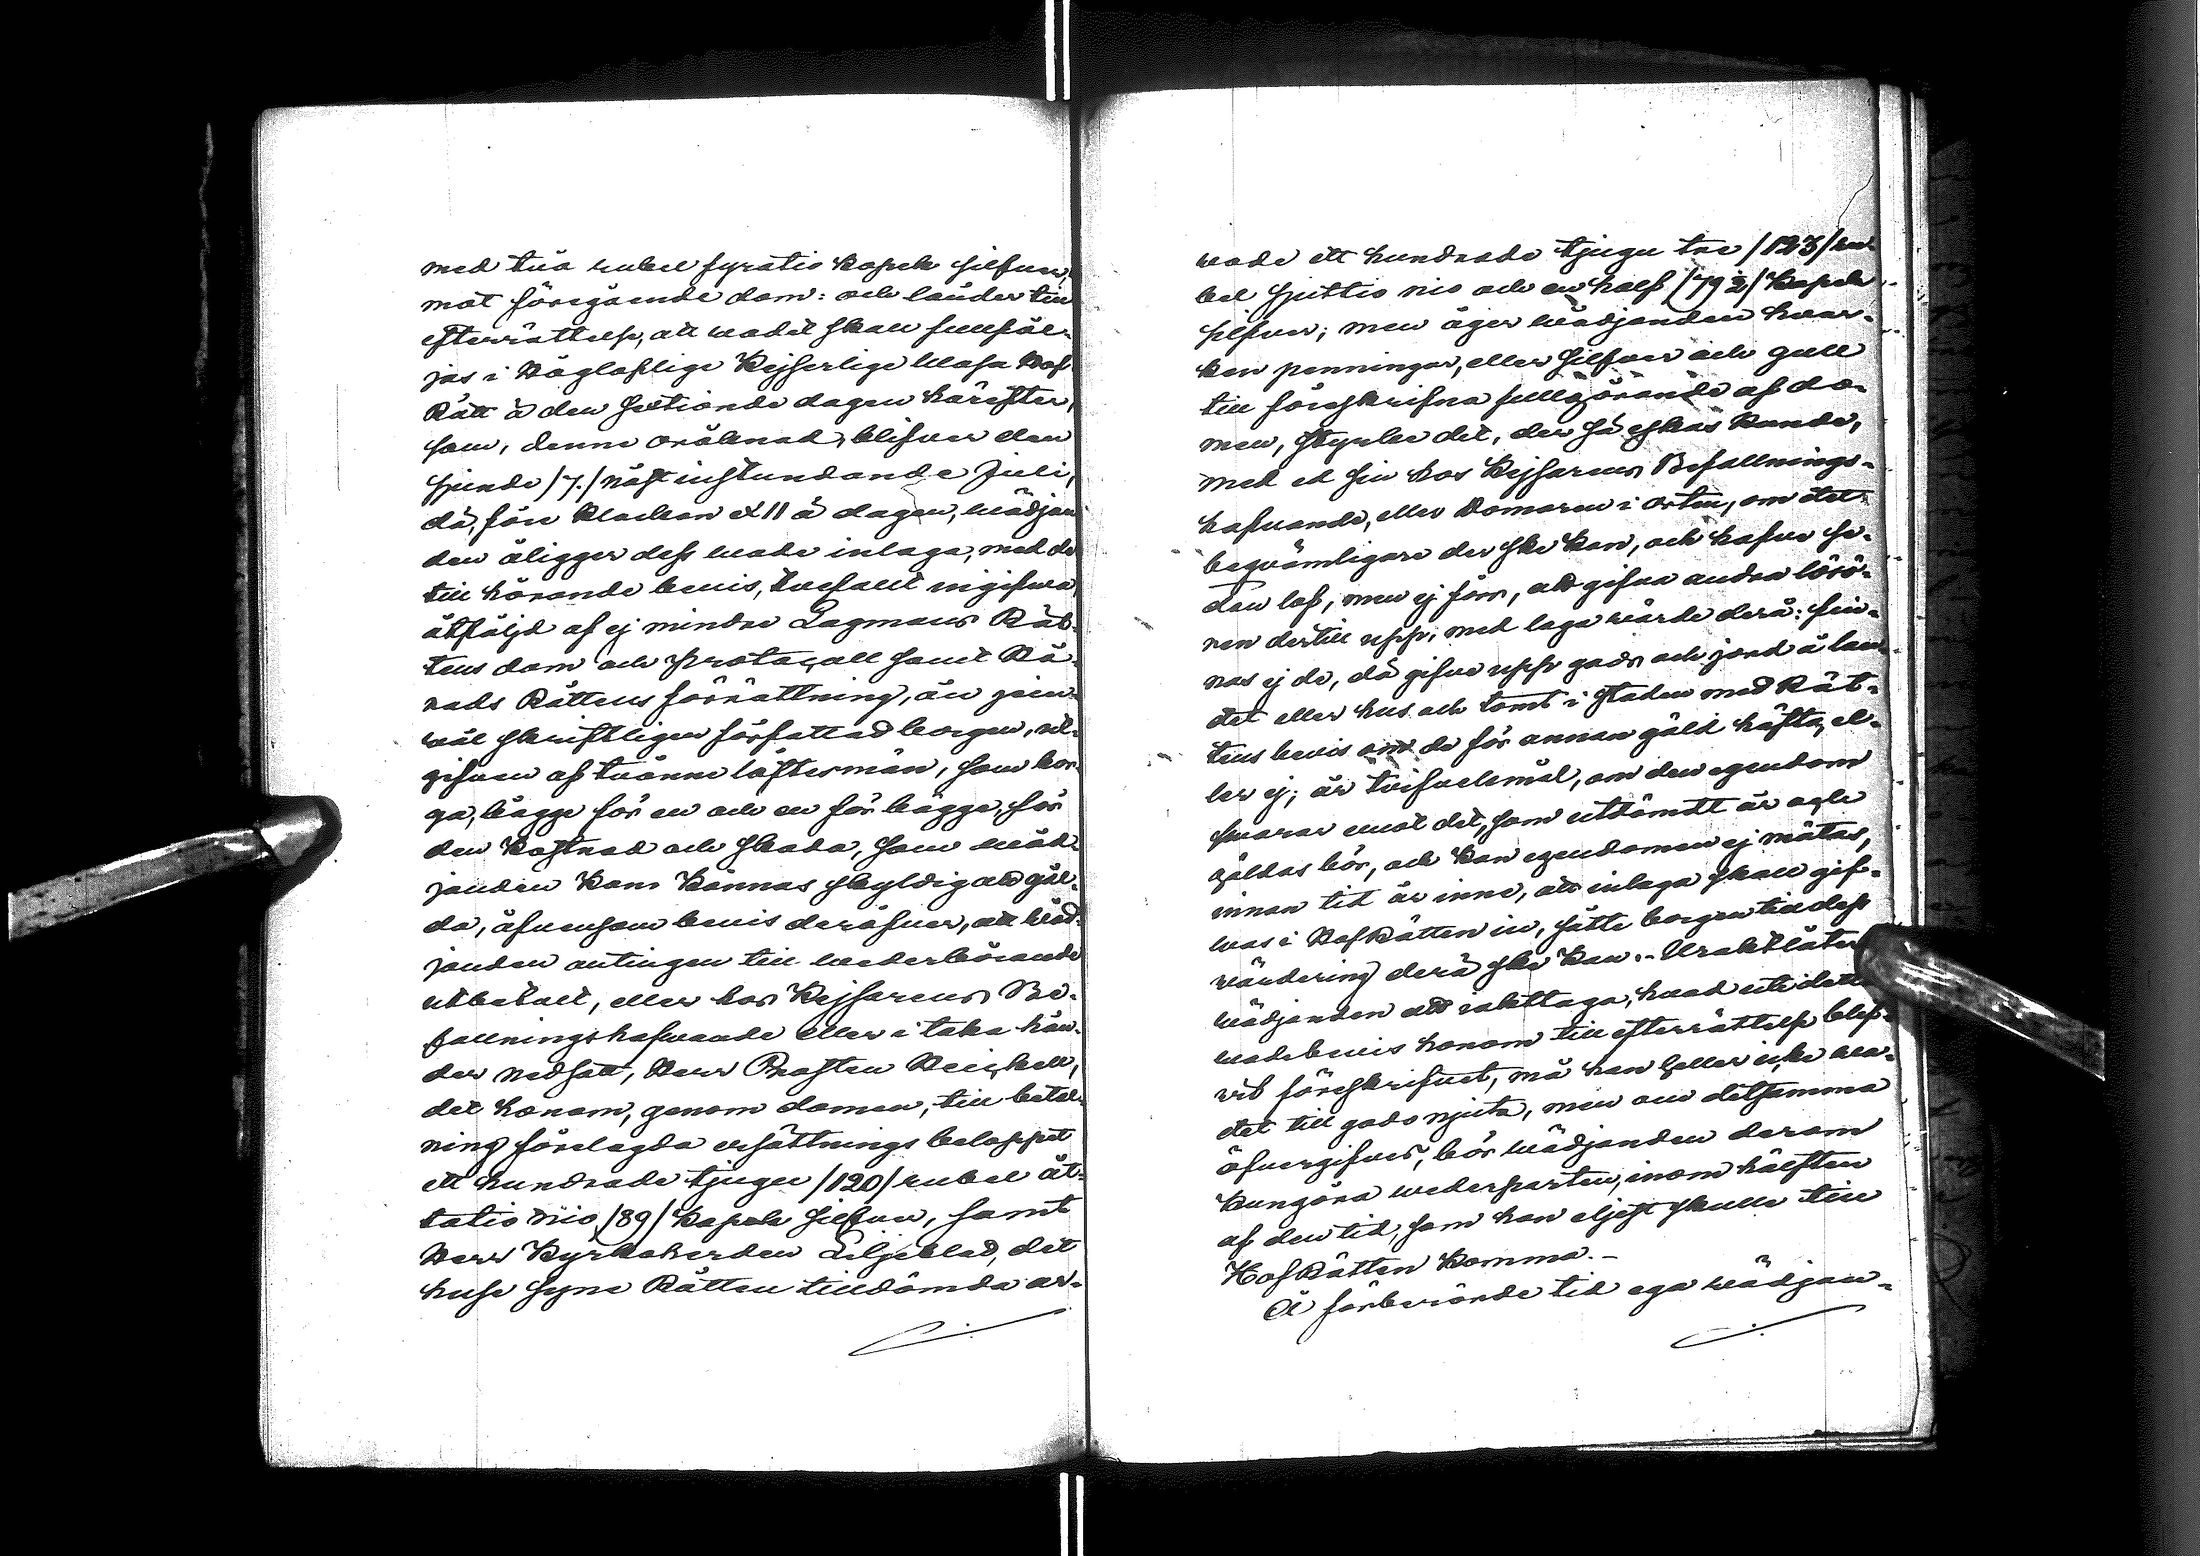 med två rubel fyratio kopek silfver,
mot föregående dom: och länder till
efterrättelse, att wadet skall fullföl-
jas i Högloflige Kejserlige Wasa Hof
Rätt å den sextionde dagen härefter,
som, denne oräknad, blifver den
sjunde /7./ näst instundande Juli,
då, före klockan XII å dagen, wädjan
den åligger dess wade inlaga, med de
till hörande bevis, twefallt ingifwa
åtföljd af ej mindre Lagmans Rät-
tens dom och protocoll samt Hä-
rads Rättens förrättning, än jem-
wäl skriftligen författad borgen, ut-
gifven af tvänne löftesmän, som bor-
ga, bägge för en och en för bägge, för
den kostnad och skada, som wäd-
janden kan kännas skyldig att gäl-
da, äfvensom bevis deröfver, att wäd-
janden antingen till wederbörande
utbetalt, eller hos Kejsarens Be-
fallningshafwande eller i taka hän-
der nedsatt, Herr Prosten
det honom, genom domen, till betal-
ning förelagda ersättnings beloppet
ett hundrade tjugu /120/ rubel åt-
tatio nio /89/ kopek silfver, samt
Herr Kyrkoherden Liljeblad, det
huse syne Rätten tilldömda ar-
wode ett hundrade tjugu tre /123/ ru-
bel sjuttio nio och en half /79 ½/ kopek
silfver; men äger wädjanden hwar-
ken penningar, eller silfver och gull
till föreskrifna fullgörande af do-
men, styrke det, der så äskas kunde,
med ed sin hos Kejsarens Befallnings-
hafvande, eller Domaren i orten, om det
beqvämligare der ske kan, och hafve se-
dan lof, men ej förr, att gifva andra lösö-
ren dertill upp, med laga wärde derå: fin-
nas ej de, då gifve upp gods och jord å lan-
det eller hus och tomt i staden med Rät-
tens bevis om de för annan gäld häfta, el-
ler ej; är tvifvelsmål, om den egendom
swarar emot det, som utdömdt är och
gäldas bör, och kan egendomen ej mätas,
innan tid är inne, att inlaga skall gif-
was i HofRätten in, sätte borgen till dess
wärdering derå ske kan. - Uraktlåter
wädjanden att iakttaga, hwad uti detta
wadebevis honom till efterrättelse blif-
vit föreskrifvet, må han heller icke wa-
det till godo njuta, men om detsamma
öfvergifves, bör wädjanden derom
kungöra wederparten, inom hälften
af den tid, som han eljest skulle till
HofRätten komma. -
Å förberörde tid ega wädjan-